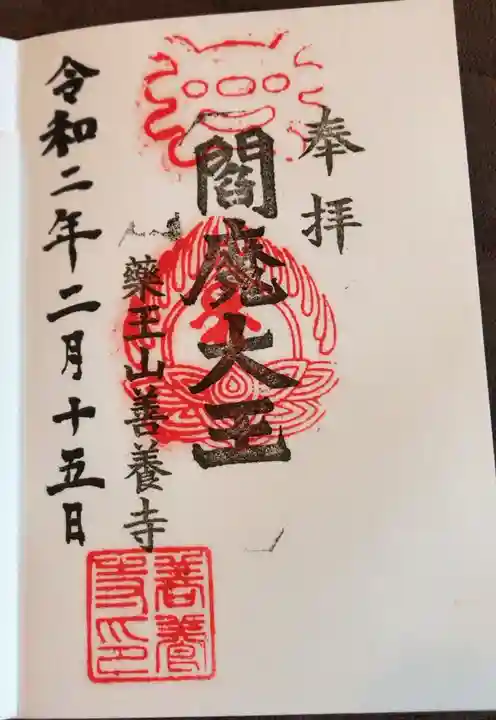 奉拝
閻魔大王
藥王山善養寺
令和二年二月十五日
善養
寺印